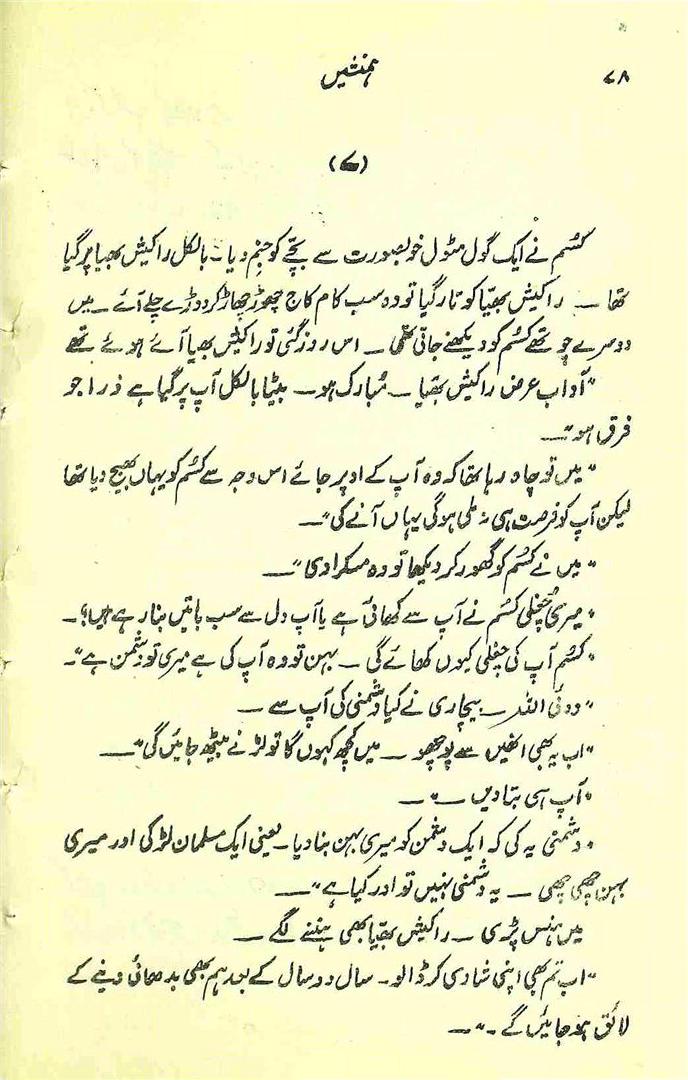 ۷۸ ہمنشیں
(۷)
کسُم نے ایک گول مٹول خوبصورت سے بچّے کو جنم دیا۔ بالکل راکیش بھیا پر گیا
تھا ـــ راکیش بھیّا کو تار گیا تو وہ سب کام کاج چھوڑ چھاڑ کر دوڑے چلے آئے ۔ میں
دوسرے چوتھے کسُم کو دیکھنے جاتی تھی ـــ اس روز گئی تو راکیش بھیا آئے ہوئے تھے
"آداب عرض راکیش بھیّا ـــ مُبارک ہو ـــ بیٹا بالکل آپ پر گیا ہے ذرا جو
فرق ہو"ـــ
"میں تو چاہ رہا تھا کہ وہ آپ کے اوپر جائے اس وجہ سے کسُم کو یہاں بھیج دیا تھا
لیکن آپ کو فرصت ہی نہ ملی ہوگی یہاں آنے کی"ـــ
"میں نے کسُم کو گھور کر دیکھا تو وہ مسکرا دی"ـــ
"میری چغلی کسُم نے آپ سے کھائی ہے یا آپ دل سے سب باتیں بنا رہے ہیں؟ـ
"کسُم آپ کی چغلی کیوں کھائے گی ـــ بہن تو وہ آپ کی ہے میری تو دشمن ہے"ـ
"ووئی اللہ ـــ بیچاری نے کیا دشمنی کی آپ سے ـــ
"اب یہ بھی انھیں سے پوچھو ـــ میں کچھ کہوں گا تو لڑنے بیٹھ جائیں گی"ـــ
"آپ ہی بتا دیں ـــ"ـــ
"دشمنی یہ کی کہ ایک دشمن کو میری بہن بنا دیا۔ یعنی ایک مسلمان لڑکی اور میری
بہن چھی چھی ـــ یہ دشمنی نہیں تو اور کیا ہے"ـــ
میں ہنس پڑی ـــ راکیش بھیّا بھی ہنسنے لگے ـــ
"اب تم بھی اپنی شادی کر ڈالو۔ سال دو سال کے بعد ہم بھی بدھائی دینے کے
لائق ہو جائیں گے ۔"ـــ